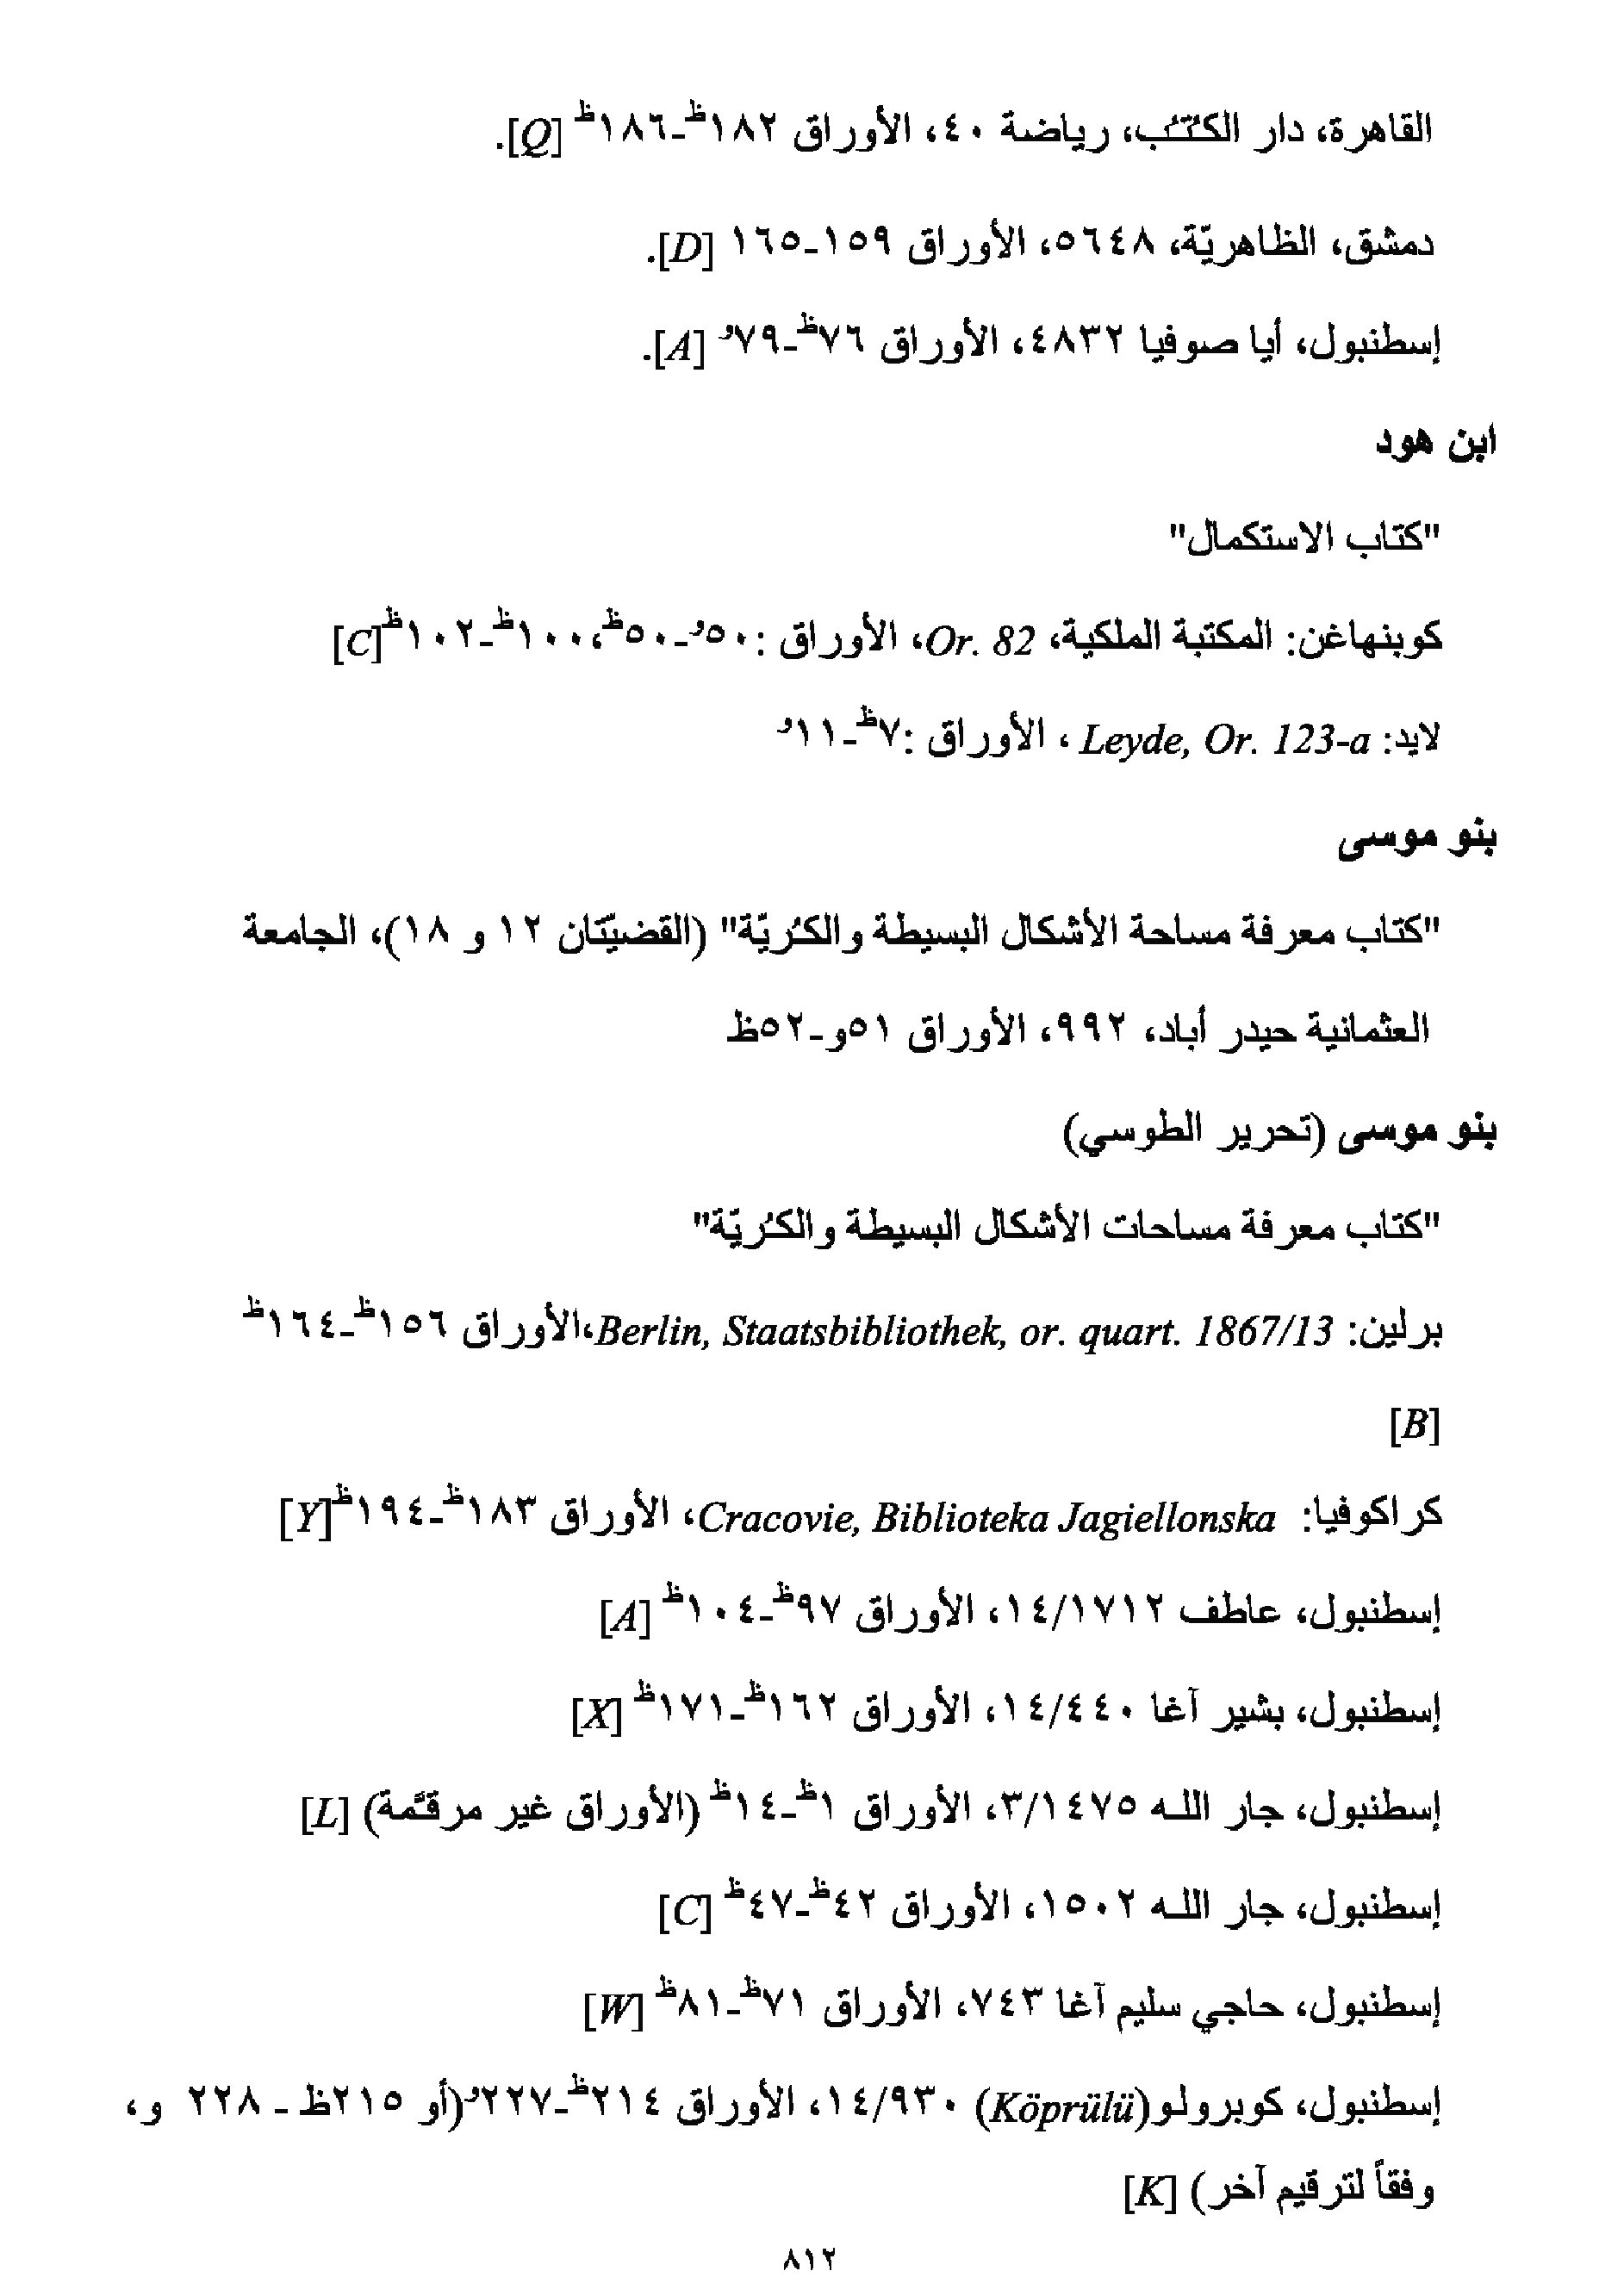 القاهرة، دار الكتُب، رياضة ٤٠، الأوراق ١٨٢ظ-١٨٦ظ [Q].
دمشق، الظاهريّة، ٥٦٤٨، الأوراق ١٥٩-١٦٥ [D].
إسطنبول، أيا صوفيا ٤٨٣٢، الأوراق ٧٦ظ-٧٩و [A].
ابن هود
"كتاب الاستكمال"
كوبنهاغن: المكتبة الملكية، Or. 82، الأوراق :٥٠و-٥٠ظ، ١٠٠ظ-١٠٢ظ[C]
لايد: Leyde, Or. 123-a ، الأوراق :٧ظ-١١و
بنو موسى
"كتاب معرفة مساحة الأشكال البسيطة والكُريّة" (القضيّتان ١٢ و ١٨)، الجامعة
العثمانية حيدر أباد، ٩٩٢، الأوراق ٥١و-٥٢ظ
بنو موسى (تحرير الطوسي)
"كتاب معرفة مساحات الأشكال البسيطة والكُريّة"
برلين: Berlin, Staatsbibliothek, or. quart. 1867/13،الأوراق ١٥٦ظ-١٦٤ظ
[B]
كراكوفيا: Cracovie, Biblioteka Jagiellonska، الأوراق ١٨٣ظ-١٩٤ظ[Y]
إسطنبول، عاطف ١٤/١٧١٢، الأوراق ٩٧ظ-١٠٤ظ [A]
إسطنبول، بشير آغا ١٤/٤٤٠، الأوراق ١٦٢ظ-١٧١ظ [X]
إسطنبول، جار اللـه ٣/١٤٧٥، الأوراق ١ظ-١٤ظ (الأوراق غير مرقـَّمة) [L]
إسطنبول، جار اللـه ١٥٠٢، الأوراق ٤٢ظ-٤٧ظ [C]
إسطنبول، حاجي سليم آغا ٧٤٣، الأوراق ٧١ظ-٨١ظ [W]
إسطنبول، كوبرولو(Köprülü) ١٤/٩٣٠، الأوراق ٢١٤ظ-٢٢٧و(أو ٢١٥ظ - ٢٢٨ و،
وفقاً لترقيم آخر) [K]
٨١٢